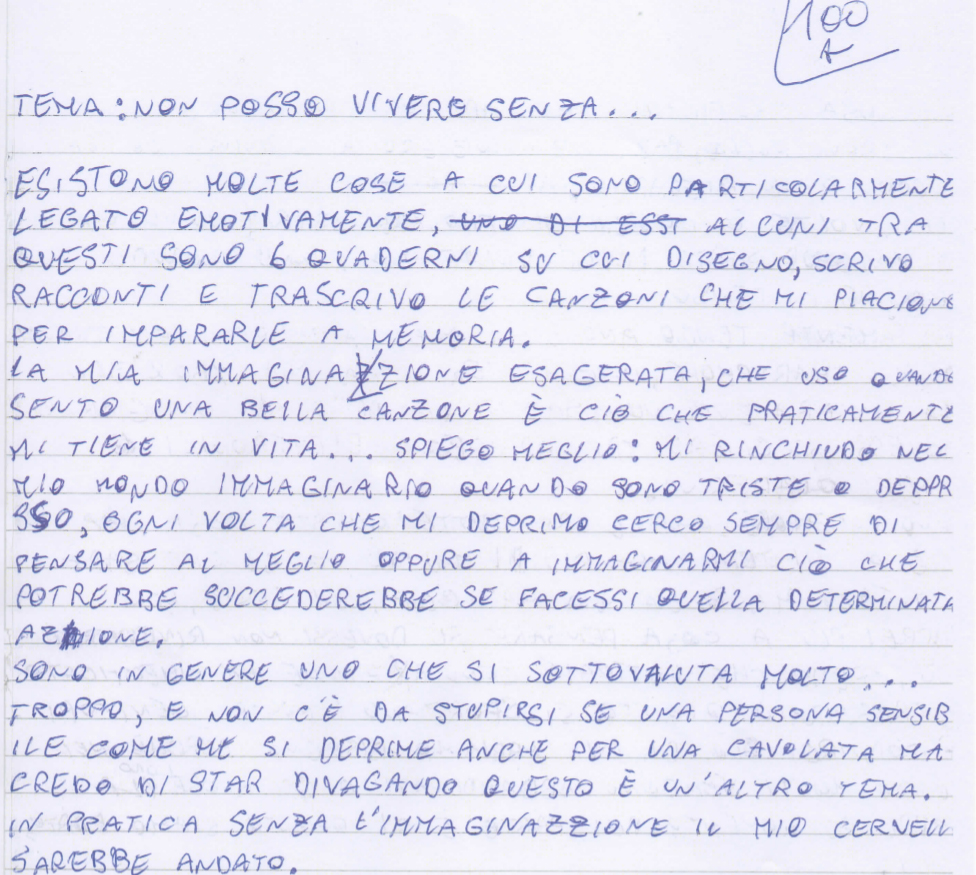 100
A
TEMA: NON POSSO VIVERE SENZA...
ESISTONO MOLTE COSE A CUI SONO PARTICOLARMENTE
LEGATO EMOTIVAMENTE, UNO DI ESSI ALCUNI TRA
QUESTI SONO 6 QUADERNI SU CUI DISEGNO, SCRIVO
RACCONTI E TRASCRIVO LE CANZONI CHE MI PIACIONO
PER IMPARARLE A MEMORIA.
LA MIA IMMAGINAZZIONE ESAGERATA, CHE USO QUANDO
SENTO UNA BELLA CANZONE È CIÒ CHE PRATICAMENTE
MI TIENE IN VITA... SPIEGO MEGLIO: MI RINCHIUDO NEL
MIO MONDO IMMAGINARIO QUANDO SONO TRISTE O DEPPR
SSO, OGNI VOLTA CHE MI DEPRIMO CERCO SEMPRE DI
PENSARE AL MEGLIO OPPURE A IMMAGINARMI CIÒ CHE
POTREBBE SUCCEDEREBBE SE FACESSI QUELLA DETERMINATA
AZIONE.
SONO IN GENERE UNO CHE SI SOTTOVALUTA MOLTO...
TROPPO, E NON C'È DA STUPIRSI SE UNA PERSONA SENSIB
ILE COME ME SI DEPRIME ANCHE PER UNA CAVOLATA MA
CREDO DI STAR DIVAGANDO QUESTO È UN'ALTRO TEMA.
IN PRATICA SENZA L'IMMAGINAZZIONE IL MIO CERVELL
SAREBBE ANDATO.